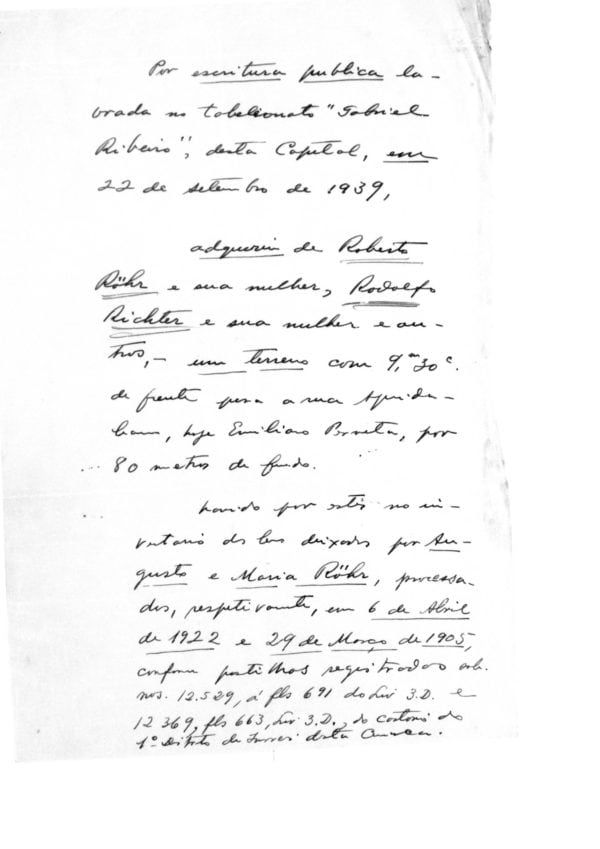 Por escritura publica la-
vrada no tabelionato "Gabriel
Ribeiro", desta Capital, em
22 de setembro de 1939,
adquerin de Roberto
Röhr e sua mulher, Rodolfo
Richter e sua mulher e ou-
tros, - um terreno com 9,m30c.
de frente para a rua Aquida-
ban, hoje Emiliano Perneta, por
80 metros de fundo.
havido por estes no in-
ventario dos bens deixados por Au-
gusto e Maria Röhr, processa-
dos, respetivamente, em 6 de Abril
de 1922 e 29 de Março de 1905,
conforme partilhas registradas sob
nos. 12.529, á fls 691 do Liv 3.D. e
12 369, fls 663, Liv 3.D., do cartorio do
1º Distrito de desta